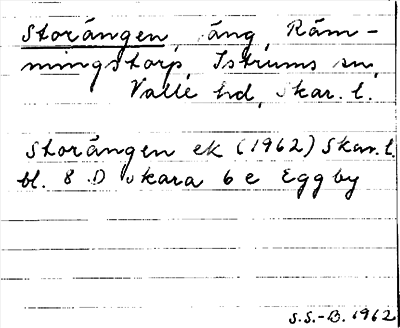 Storängen, äng, Räm-
mningstorp, Istrums sn,
Valle hd, Skar. l.
Storängen ek (1962) Skar. l.
bl. 8 D Skara 6 e Eggby
S.S.-B. 1962